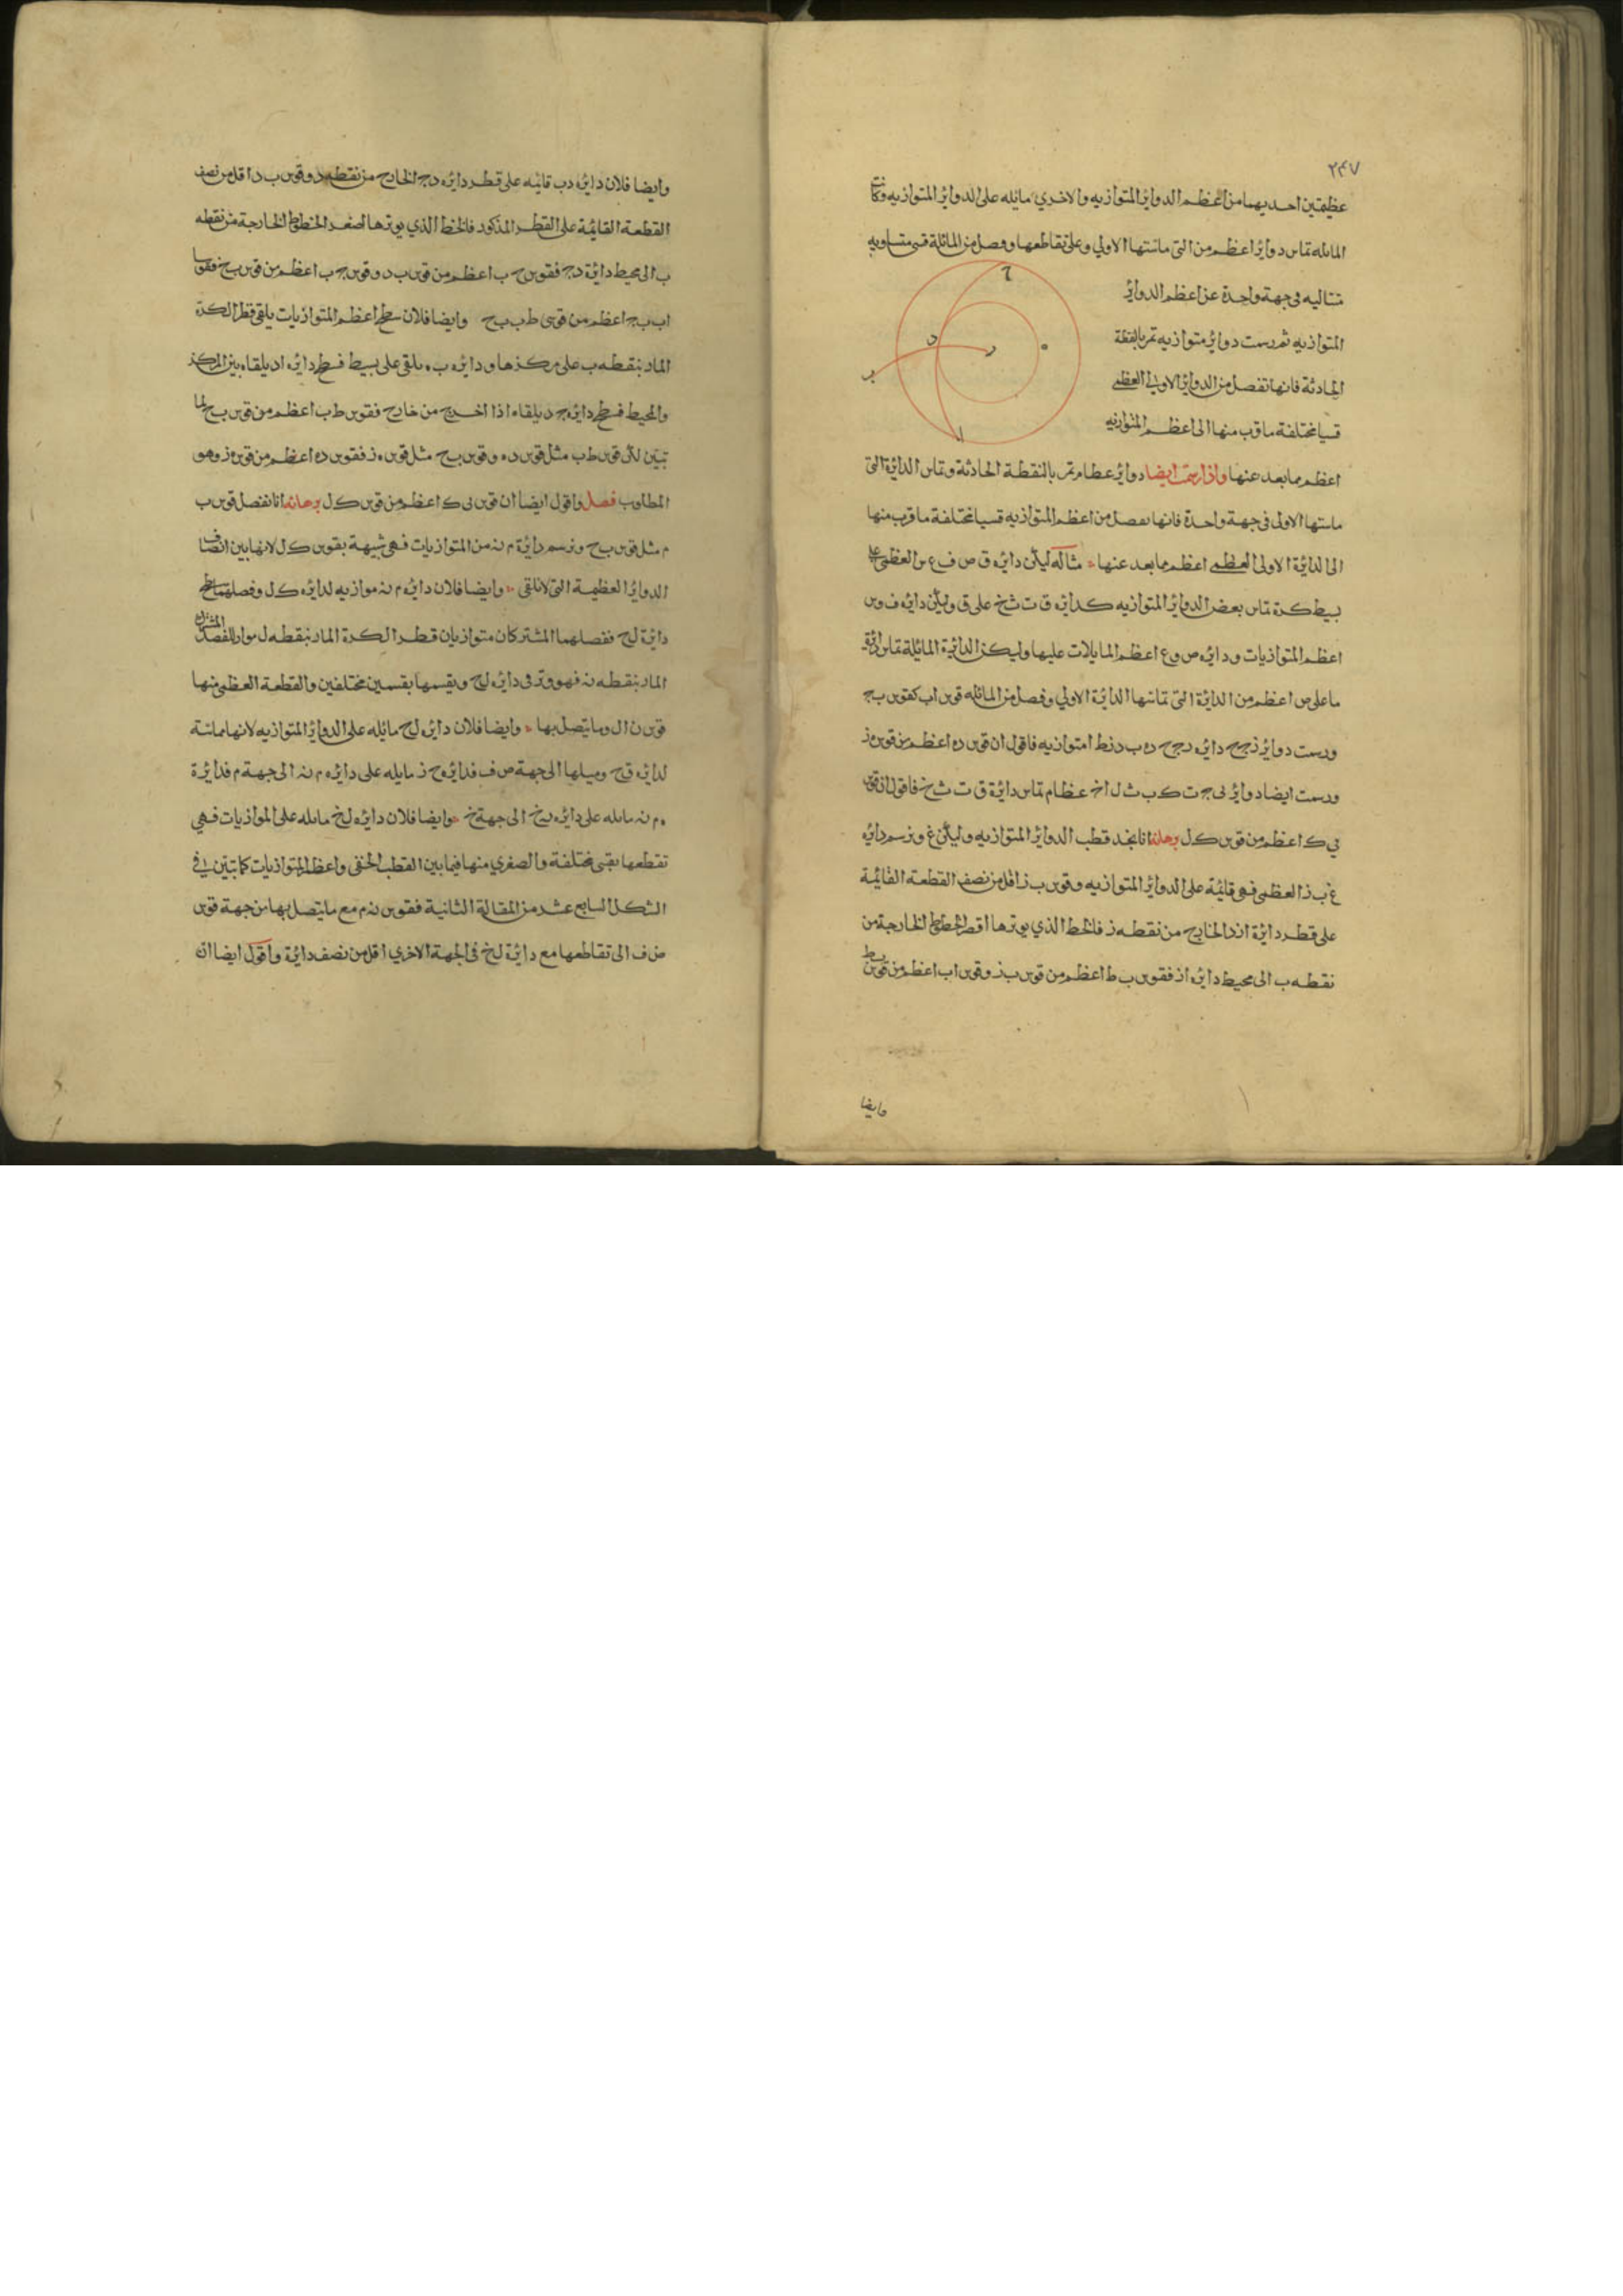 ٢٤٧
عظيمتين احديهما من اعظم الدواير المتوازيه والاخري مائله على الدواير المتوازيه وكانت
المايله تماس دواير اعظم من التي ماستها الاولي وعلى تقاطعها وفصل من المائلة قسي متساويه
متتاليه في جهة واحدة عن اعظم الدواير
المتوازيه ثم رسمت دواير متوازيه تمر بالنقطة
الحادثة فانها تفصل من الدواير الاولي العظمي
قسيا مختلفة ما قرب منها الى اعظم المتوازيه
اعظم مما بعد عنها واذا رسمت ايضا دواير عظام تمر بالنقطة الحادثة وتماس الدائرة التي
ماستها الاولى في جهة واحدة فانها تفصل من اعظم المتوازيه قسيا مختلفة ما قرب منها
الى الدائرة الاولى العظمي اعظم مما بعد عنها مثاله ليكن دايره ق ص ف ع من العظمي على
بسيط كرة تماس بعض الدواير المتوازيه كدايره ق ت ث خ على ق وليكن دايره ف و س
اعظم المتوازيات ودايره ص و ع اعظم المايلات عليها وليكن الدائرة المائلة تماس دائرة
ما على ص اعظم من الدايرة التي تماسها الدايرة الاولي وفصل من المائله قوس اب كقوس ب ج
ورسمت دواير ز ج ح دايره د ج ح ه ب د ز ط ا متوازيه فاقول ان قوس د ه اعظم من قوس ه ز
ورسمت ايضا دواير ي ج ت ك ب ث ل ا خ عظام تماس دايرة ق ت ث خ فاقول ان قوس
ي ك اعظم من قوس ك ل برهانه انا نجد قطب الدواير المتوازيه وليكن غ ونرسم دايره
غ ب ز العظمي فهي قائمة على الدواير المتوازيه وقوس ب ز اقل من نصف القطعة القائمة
على قطر دايرة از الخارج من نقطه ز فالخط الذي يوترها اقصر الخطوط الخارجة من
نقطه ب الى محيط دايره از فقوس ب ط اعظم من قوس ب ز وقوس اب اعظم من قوس ب ط
وايضا
ح
د
ر
ب
ا
وايضا فلان دايره د ب قائمه على قطر دايره د ج الخارج من نقطه د وقوس ب د اقل من نصف
القطعة القايمة على القطر المذكور فالخط الذي يوترها اصغر الخطوط الخارجة من نقطه
ب الى محيط دايرة د ج فقوس ح ب اعظم من قوس ب د وقوس ج ب اعظم من قوس ب ح فقوسا
اب ب ج اعظم من قوسي ط ب ب ح وايضا فلان سطح اعظم المتوازيات يلقي قطر الكرة
المار بنقطه ب على مركزها ودايره ب ه يلقي على بسيط فسطح دايره اد يلقاه بين المركز
والمحيط فسطح دايره ج د يلقاه اذا اخرج من خارج فقوس ط ب اعظم من قوس ب ح لما
تبين لكن قوس ط ب مثل قوس د ه وقوس ب ح مثل قوس ه ز فقوس د ه اعظم من قوس ه ز وهو
المطلوب فصل واقول ايضا ان قوس ي ك اعظم من قوس ك ل برهانه انا نفصل قوس ب
م مثل قوس ب ح ونرسم دايرة م ن من المتوازيات فهي شبيهة بقوس ك ل لانها بين انصاف
الدواير العظيمة التي لا تلقي وايضا فلان دايره م ن موازيه لدايره ك ل وفصلهما سطح
دائرة ل ح ففصلهما المشتركان متوازيان قطر الكرة المار بنقطه ل مواز للفصل المشترك
المار بنقطه ن فهو وتر في دايره ل ح ويقسمها بقسمين مختلفين والقطعة العظمي منها
قوس ن ال وما يتصل بها وايضا فلان دايره ل ح مائله على الدواير المتوازيه لانها مماسة
لدايره ق ح وميلها الى جهة ص ف فدايره ح ز مايله على دايره م ن الى جهة م فدايرة
م ن مايله على دايره ن خ الى جهة خ وايضا فلان دايره ل خ مايله على الموازيات فهي
تقطعها بقسي مختلفة والصغري منها فيما بين القطب الخفي واعظم المتوازيات كما تبين في
الشكل السابع عشر من المقالة الثانية فقوس ن م مع ما يتصل بها من جهة قوس
ص ف الى تقاطعها مع دايرة ل خ في الجهة الاخري اقل من نصف دايرة واقول ايضا ان